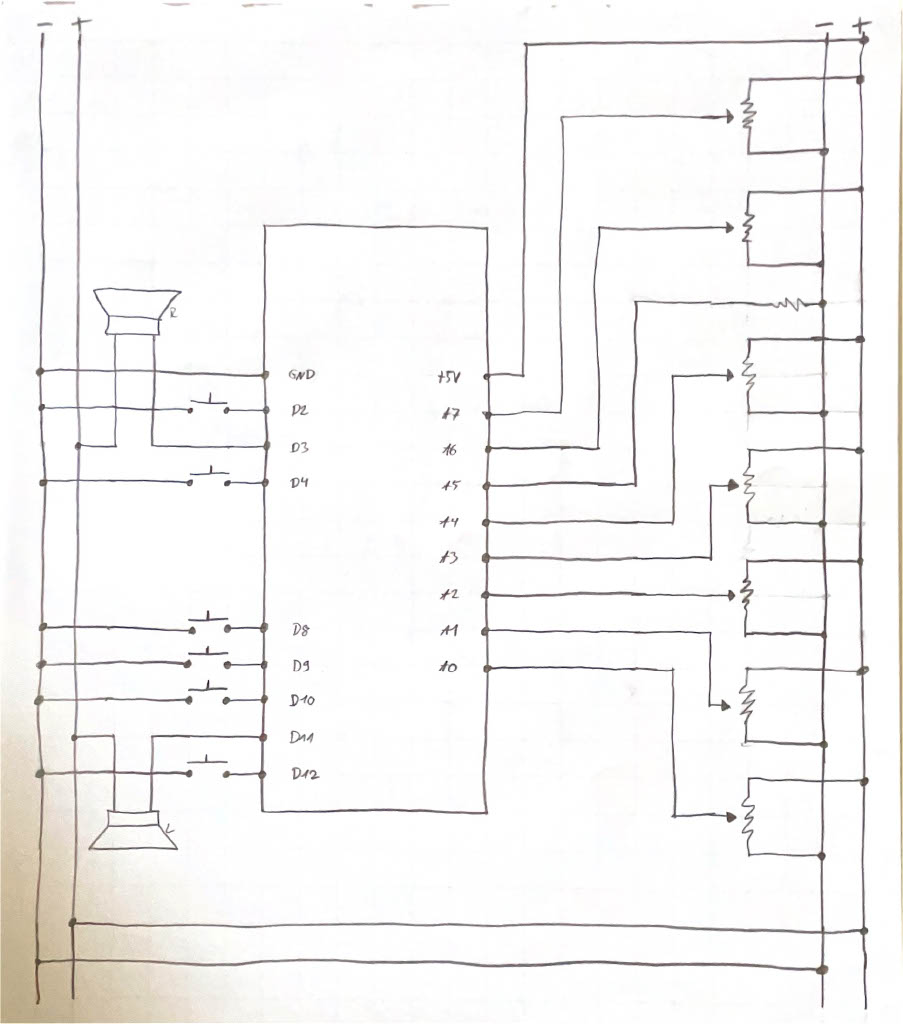 - + - +
R
GND
D2
D3
D4
D8
D9
D10
D11
D12
L
+5V
A7
A6
A5
A4
A3
A2
A1
A0